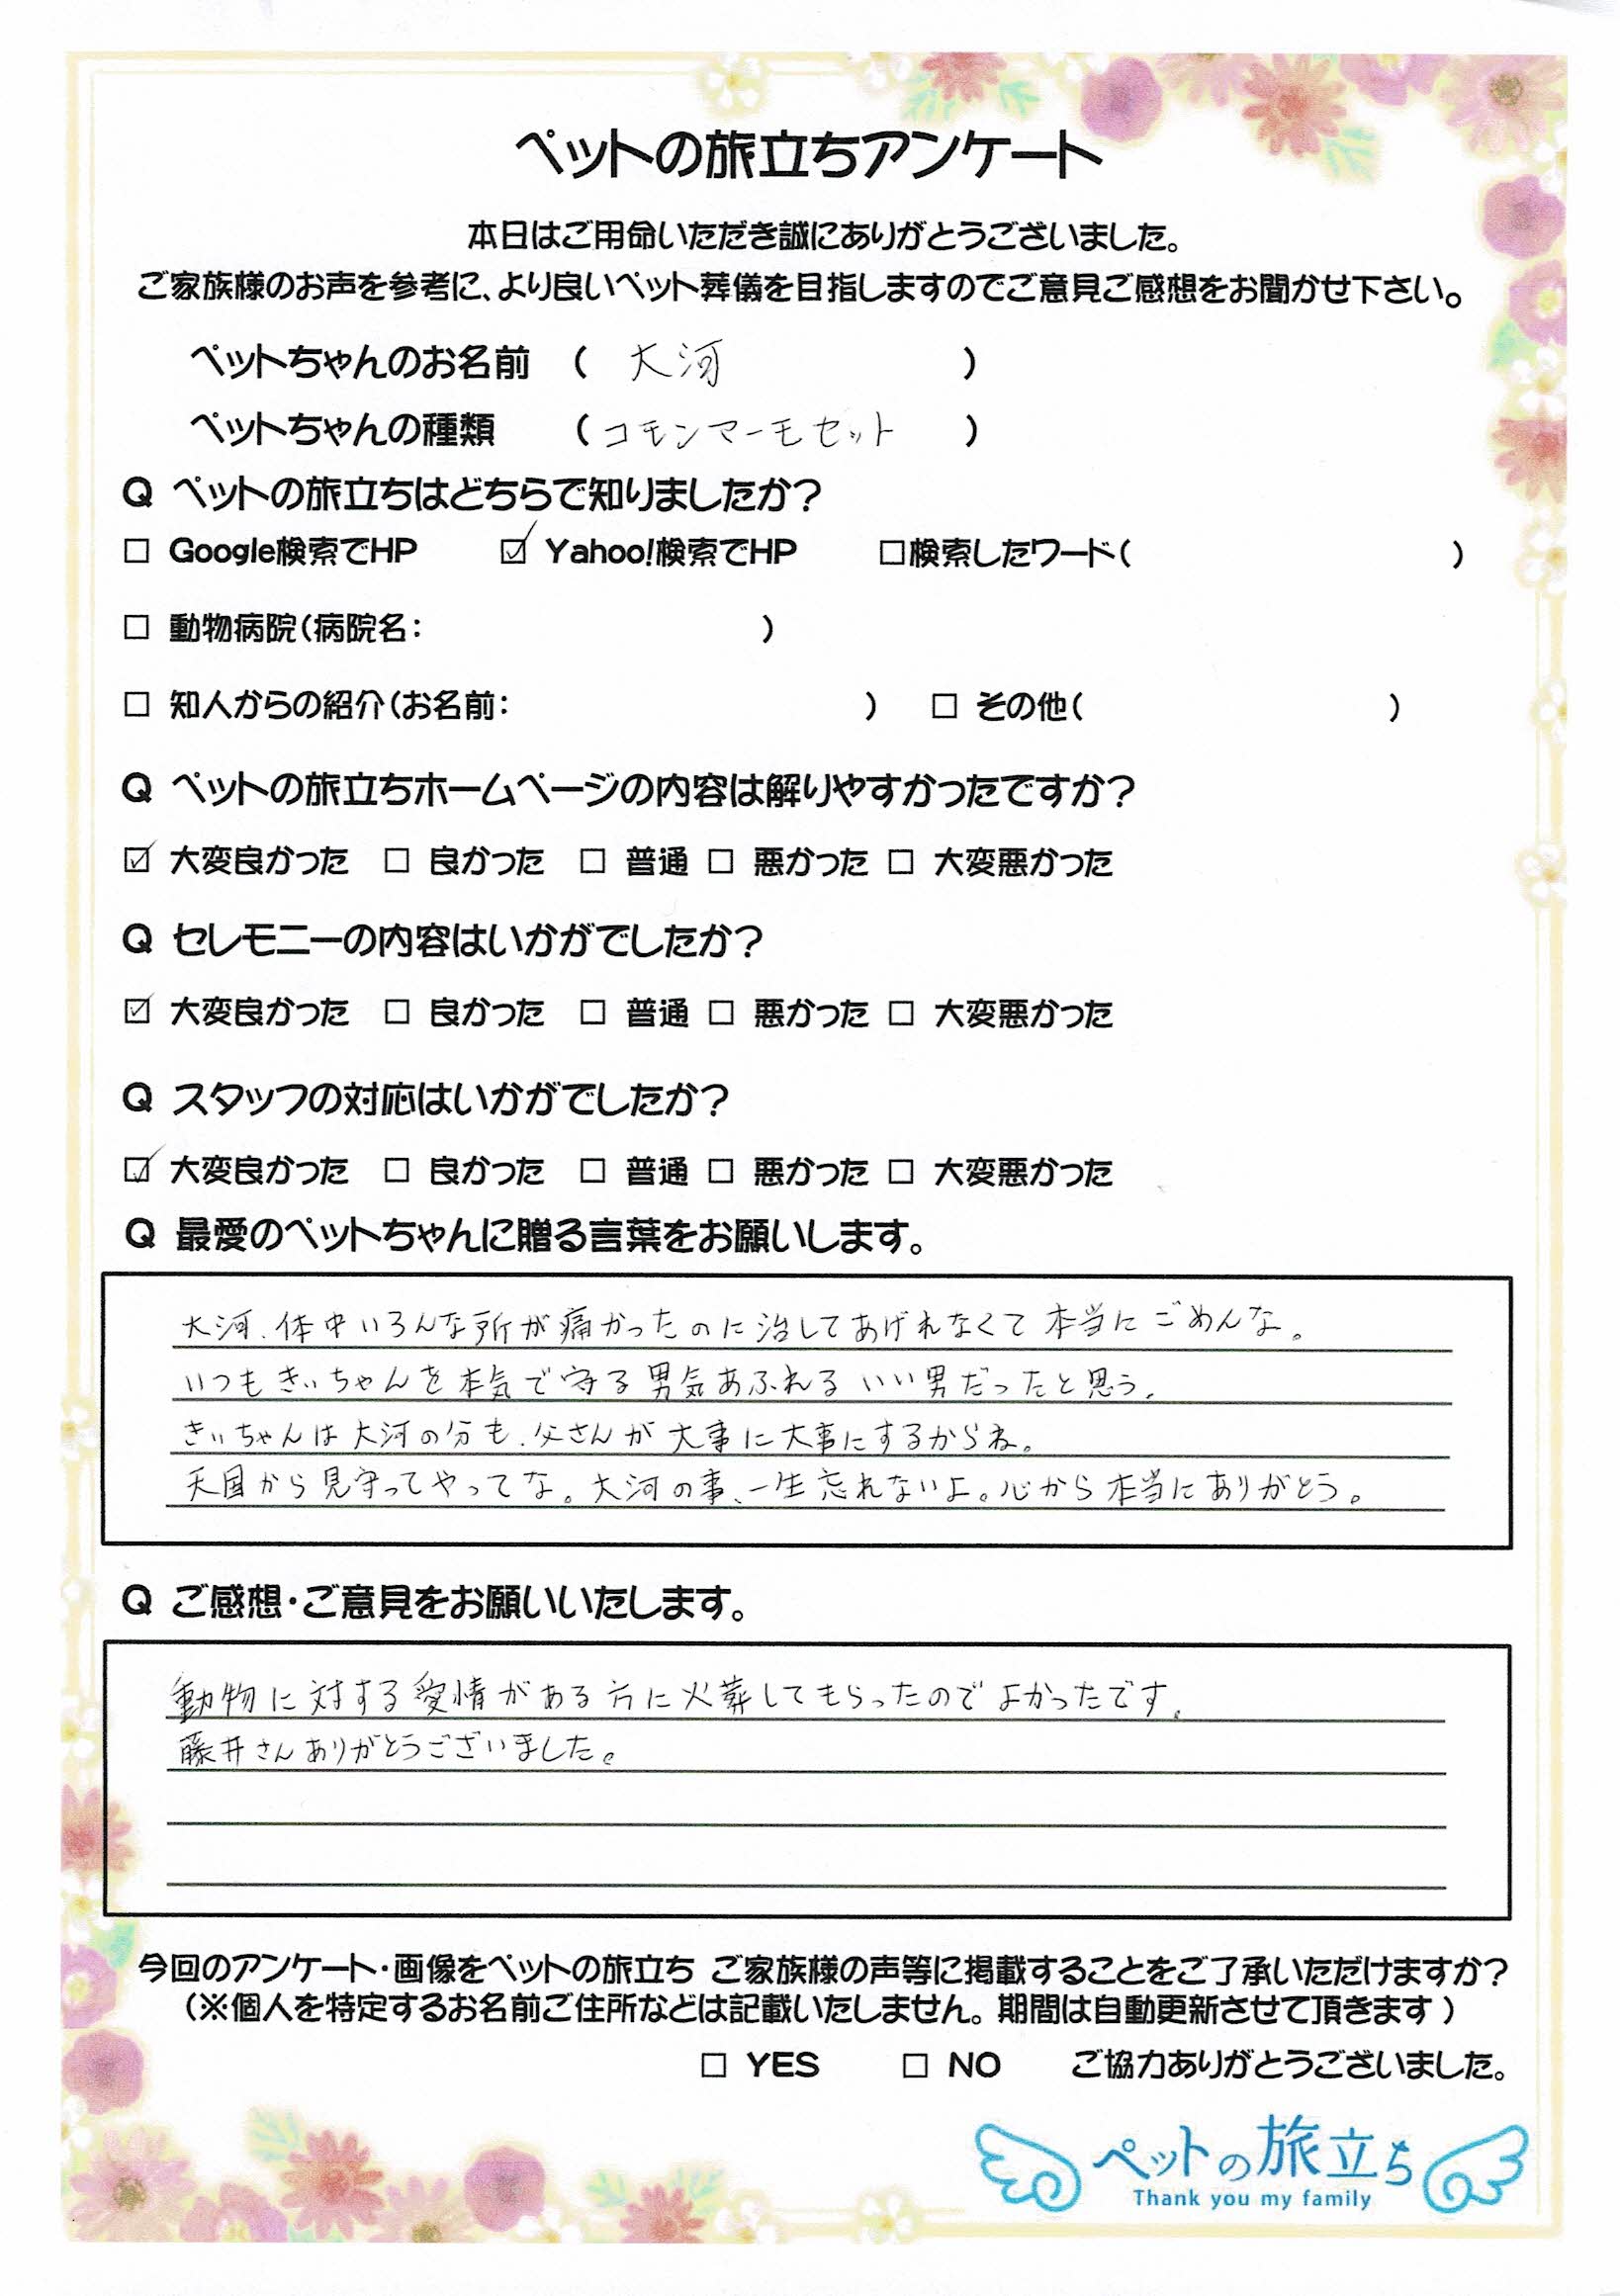 ペットの旅立ちアンケート
本日はご用命いただき誠にありがとうございました。
ご家族様のお声を参考に、より良いペット葬儀を目指しますのでご意見ご感想をお聞かせ下さい。
ペットちゃんのお名前 ( 大河 )
ペットちゃんの種類 ( コモンマーモセット )
Q ペットの旅立ちはどちらで知りましたか?
☐ Google検索でHP ☑ Yahoo!検索でHP ☐検索したワード( )
☐ 動物病院(病院名: )
☐ 知人からの紹介(お名前: ) ☐ その他( )
Q ペットの旅立ちホームページの内容は解りやすかったですか?
☑ 大変良かった ☐ 良かった ☐ 普通 ☐ 悪かった ☐ 大変悪かった
Q セレモニーの内容はいかがでしたか?
☑ 大変良かった ☐ 良かった ☐ 普通 ☐ 悪かった ☐ 大変悪かった
Q スタッフの対応はいかがでしたか?
☑ 大変良かった ☐ 良かった ☐ 普通 ☐ 悪かった ☐ 大変悪かった
Q 最愛のペットちゃんに贈る言葉をお願いします。
大河、体中いろんな所が痛かったのに治してあげれなくて本当にごめんな。
いつもきぃちゃんを本気で守る男気あふれるいい男だったと思う。
きぃちゃんは大河の分も、父さんが大事に大事にするからね。
天国から見守ってやってな。大河の事、一生忘れないよ。心から本当にありがとう。
Q ご感想・ご意見をお願いいたします。
動物に対する愛情がある方に火葬してもらったのでよかったです。
藤井さんありがとうございました。
今回のアンケート・画像をペットの旅立ち ご家族様の声等に掲載することをご了承いただけますか?
(※個人を特定するお名前ご住所などは記載いたしません。期間は自動更新させて頂きます)
☐ YES ☐ NO ご協力ありがとうございました。
ペットの旅立ち
Thank you my family